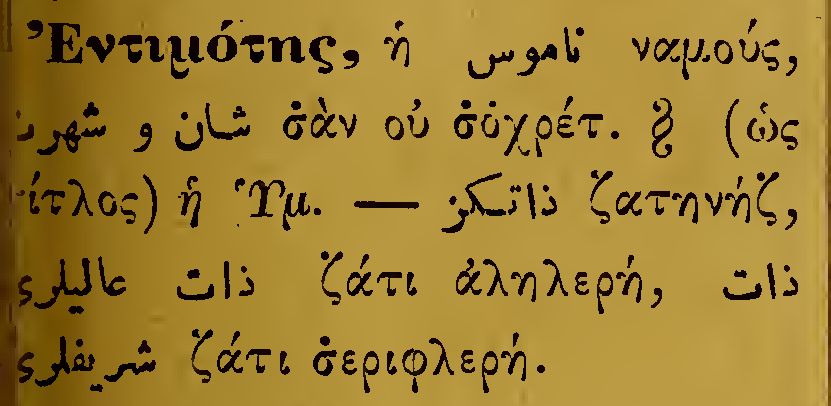 Ἐντιμότης, ἡ ناموس ναμούς,
شان و شهرت σ̇ὰν οὐ σ̇ὀχρέτ. § (ὡς
τίτλος) ἡ Ὑμ. — ذاتكز ζατηνήζ,
ذات عاليلرى ζάτι ἀληλερή, ذات
شريفلرى ζάτι σ̇εριφλερή.